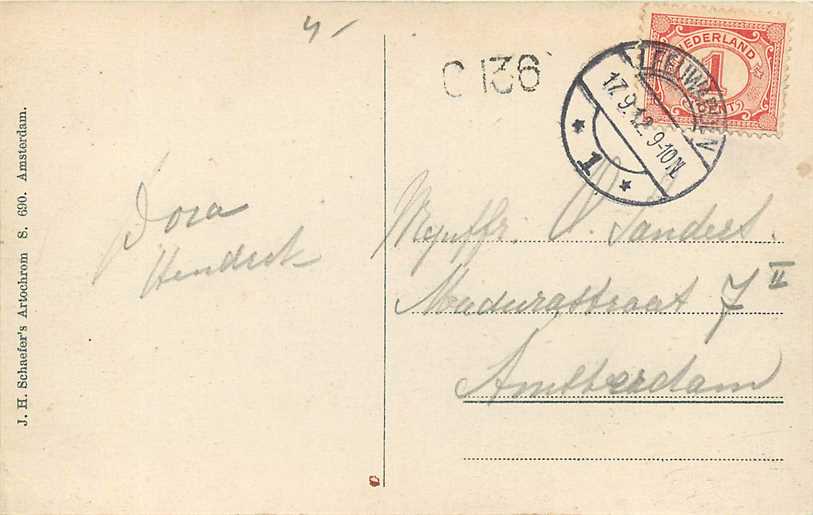 4-
C 136
NEDERLAND
1
CENT
LEEUWARDEN
17.9.12 9-10N.
1
Dora
Hendrik
Mejuffr. O. Sanders.
Madurastraat 7 II
Amsterdam
J. H. Schaefer's Artochrom S. 690. Amsterdam.